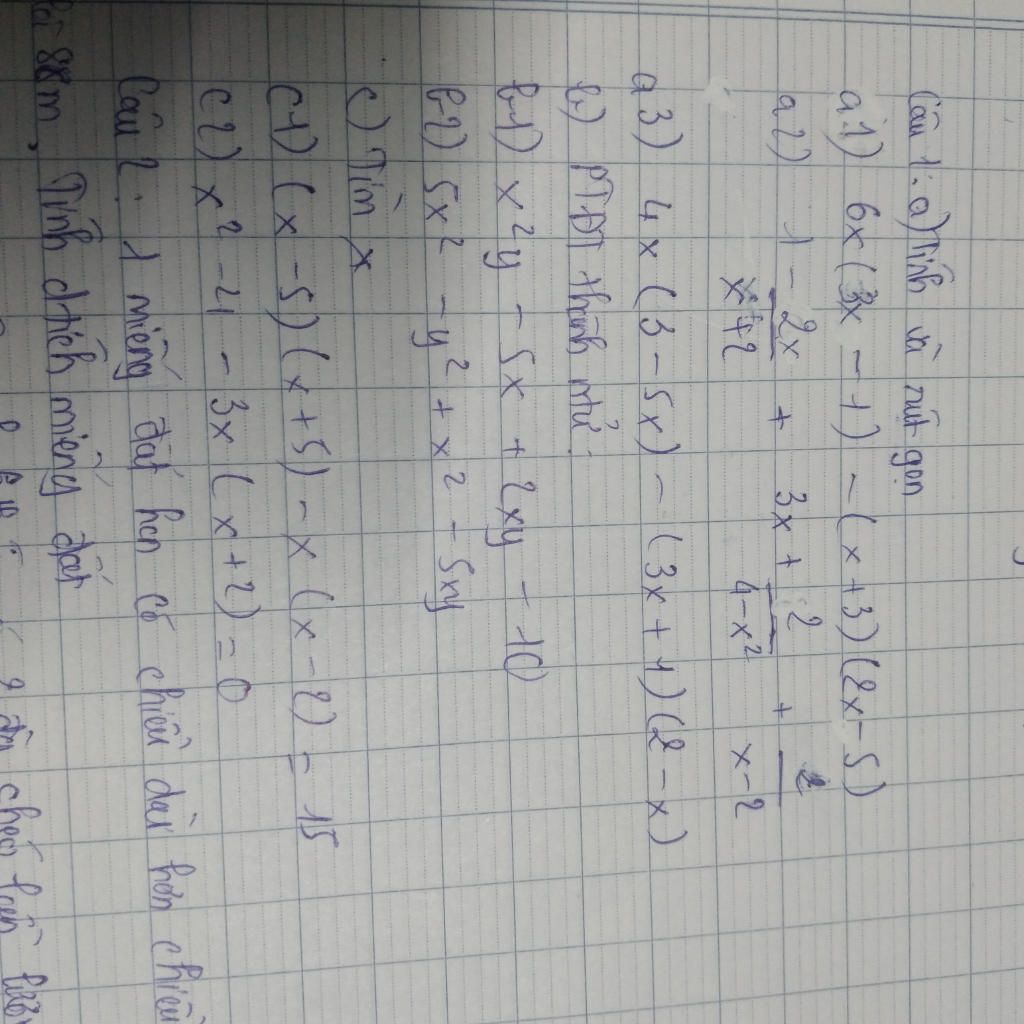 Câu 1: a) Tính và rút gọn
a1) 6x(3x - 1) - (x + 3)(2x - 5)
a2) (1 - 2x)/(x + 2) + (3x + 2)/(4 - x²) + 2/(x - 2)
a3) 4x(3 - 5x) - (3x + 4)(2 - x)
b) PTĐT thành nhtử:
b1) x²y - 5x + 2xy - 10
b2) 5x² - y² + x² - 5xy
c) Tìm x
c1) (x - 5)(x + 5) - x(x - 2) = 15
c2) x² - 4 - 3x(x + 2) = 0
Câu 2: 1 miếng đất hcn có chiều dài hơn chiều
88m. Tính dtích miếng đất